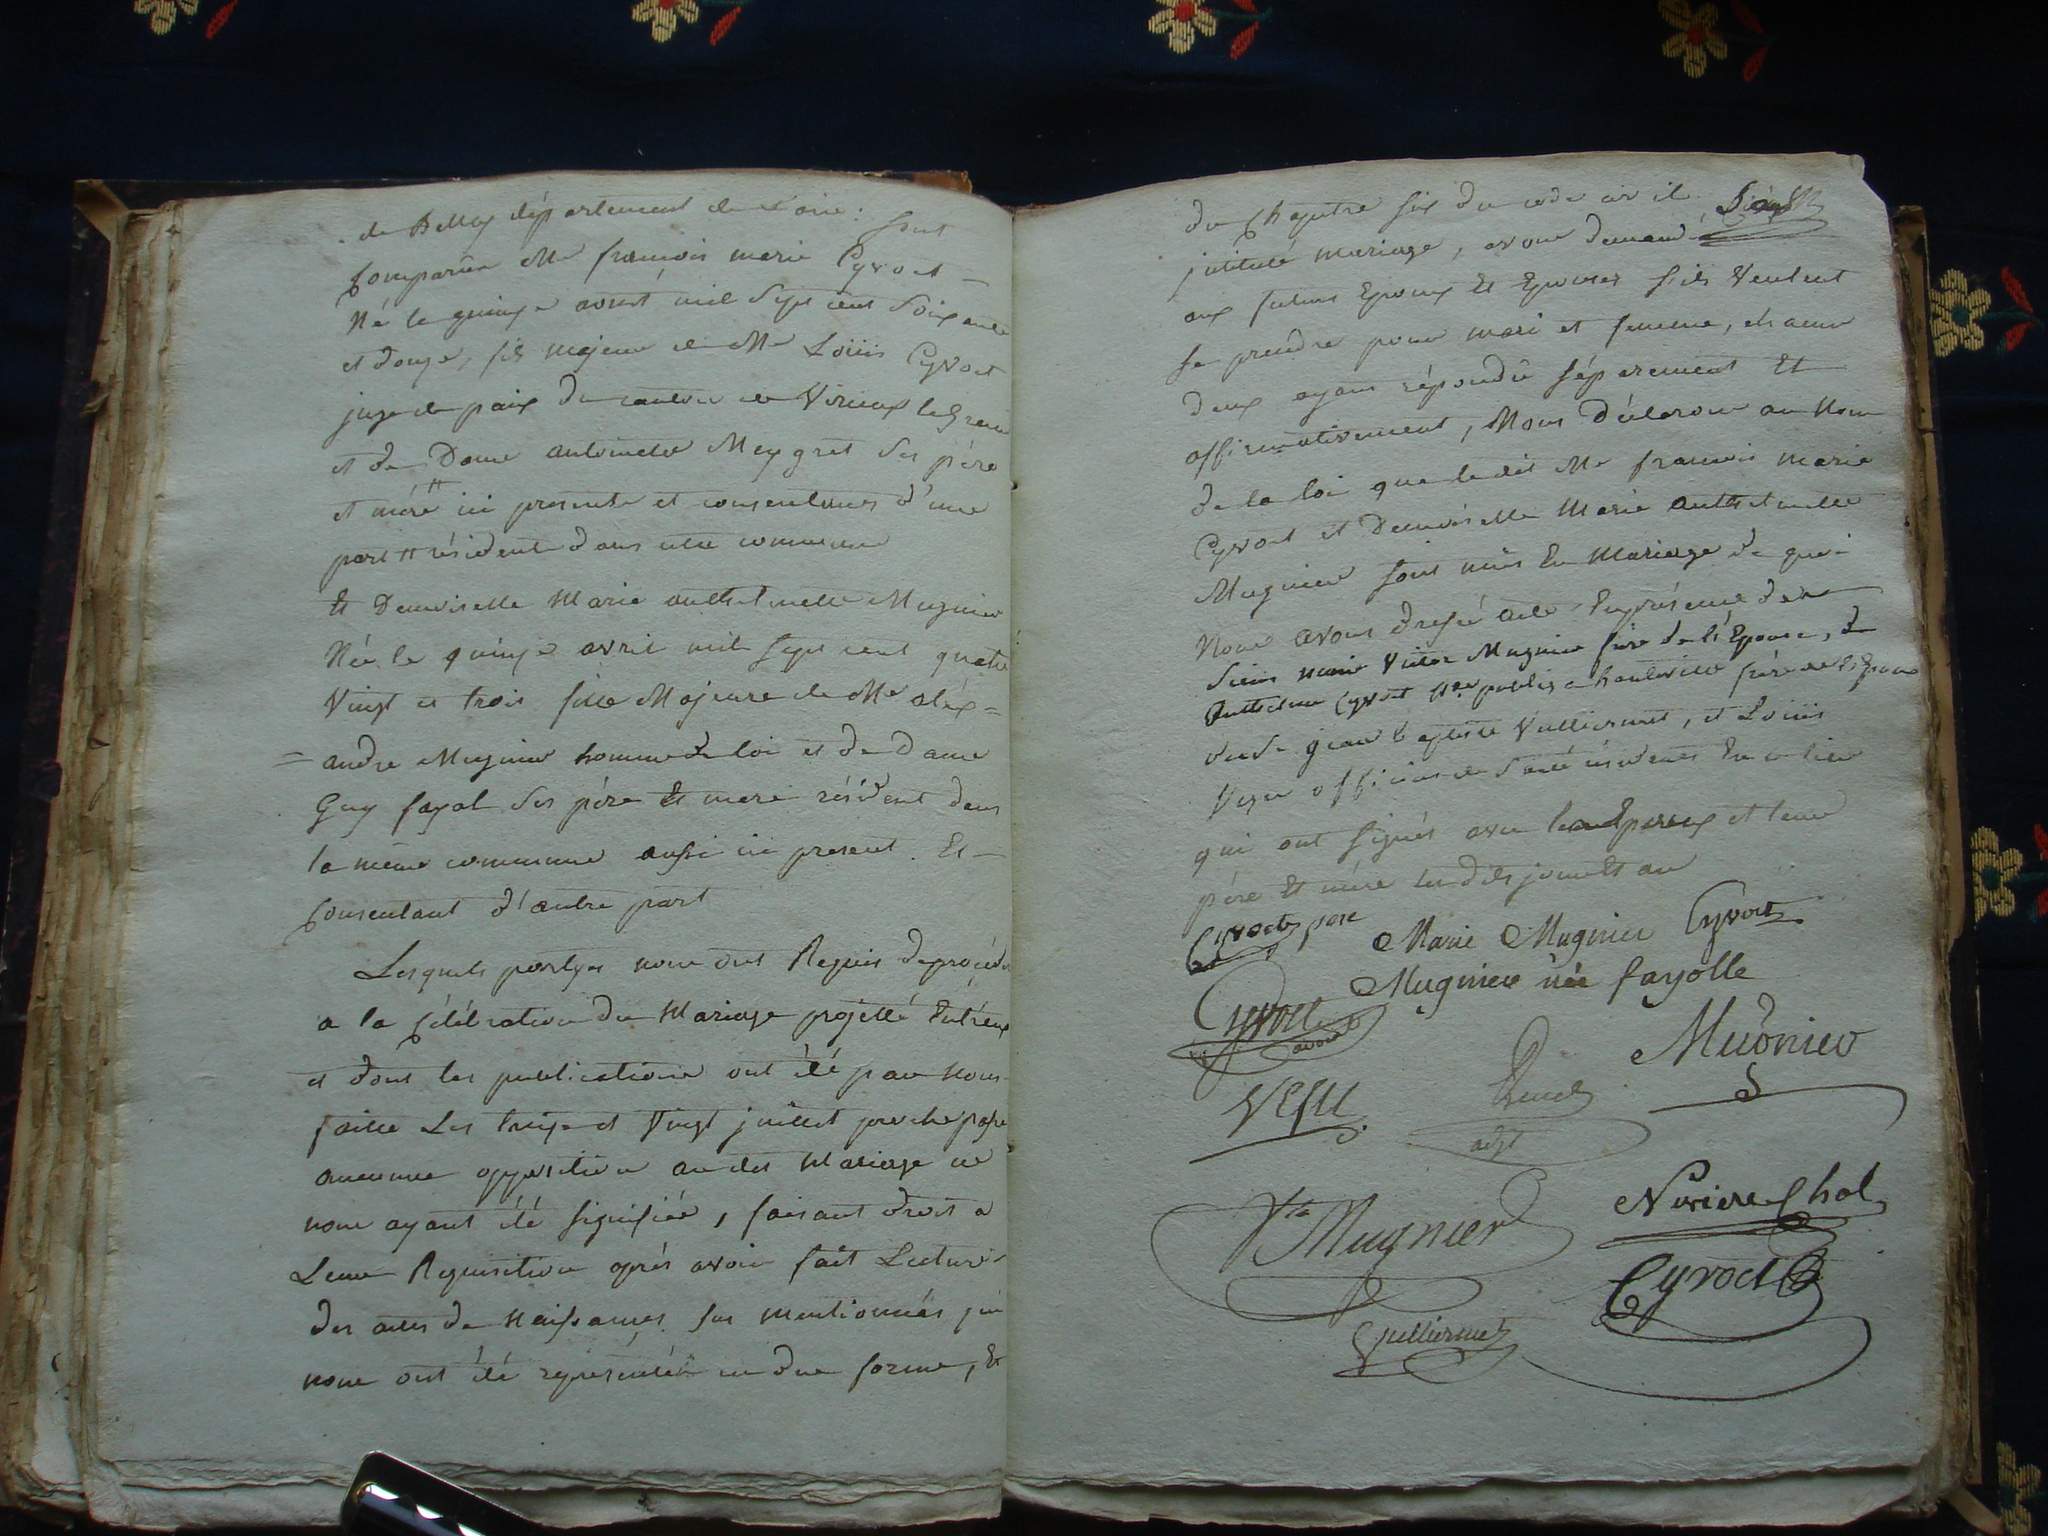 de Belley département de l'ain : sont
Comparûs Mr françois marie Cyvoct
Né le quinze aoust mil sept cent soixante
et douze, fils majeur de Mr Louis Cyvoct
juge de paix du canton de Virieux le Grand
et de Dame antoinette Meygret ses père
et mére # ici presents et consentants d'une
part # résident dans cette commune
Et Demoiselle Marie anthelmette Mugnier
Née le quinze avril mil sept cent quatre
Vingt et trois fille Majeure de Mr aléx=
=andre Mugnier homme de loi et de Dame
Guy fayol ses pére Et mere résident dans
la même commune aussi ici present. Et
Consentant d'autre part
Lesquels parties nous ont Requis de procéder
a la Célébration du Mariage projetté Entréux
et dont les publications ont été par Nous
faites Les treize et Vingt juillet proche passé
aucunne opposition au dit Mariage ne
nous ayant été signifiée, faisant droit a
Leur Requisition aprés avoir fait Lecture
des actes de Naissances sus mentionnés qui
nous ont été représentés en due forme, Et
du Chapitre six du code civil
intitulé mariage, avons demandé
aux futurs Epoux Et Epouses s'ils Veulent
se prendre pour mari et femme, chacun
deux ayant répondû séparement Et
affirmativement, Nous Déclarons au Nom
de la loi que le dit Mr francois marie
Cyvoct et Demoiselle Marie anthelmette
Mugnier sont unis En Mariage de quoi
Nous avons dressé acte En présence de
Sieurs marie Victor Mugnier frère de l'Epouse, de
Anthelme Cyvoct Nre public a hauteville frére de l'Epoux
de Sr jean baptiste Vulliermet, et Louis
Vezu officiers de Santé résidents En ce lieu
qui ont signés avec les Epoux et leur
pére Et mére les dits jour Et an
Cyvoct pere
Marie Mugnier Cyvoct
Mugnier née fayolle
Cyvoct
avoué
Mugnier
Vezu
adjt
Vor Mugnier
Cyvoct
Vulliermet